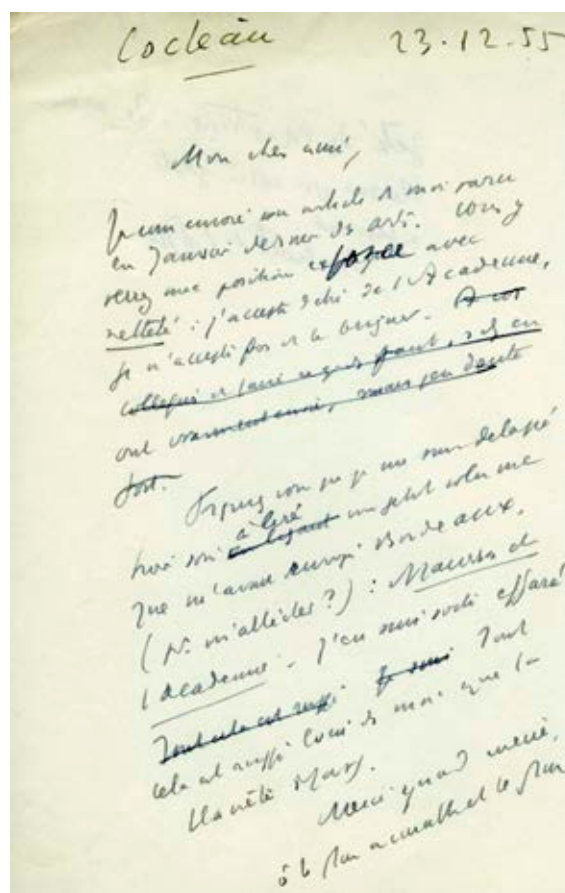 Cocteau 23.12.55
Mon cher ami,
Je vous envoie un article de moi paru
en Janvier dernier ds Arts. Vous y
verrez une position exposée avec
netteté : j'accepte d'être de l'Académie,
je n'accepte pas de la briguer.
collègues de faire
ont vraiment envie, mais j'en doute
fort.
Figurez-vous que je me suis délassé
trois soirs en lisant à lire un petit volume
que m'avait envoyé Bordeaux.
(pr m'allécher ?) : Maurras et
l'Académie. J'en suis sorti effaré
Tout cela est aussi Je suis Tout
cela est aussi loin de moi que la
Planète Mars.
Merci quand même,
ô le plus et le plus